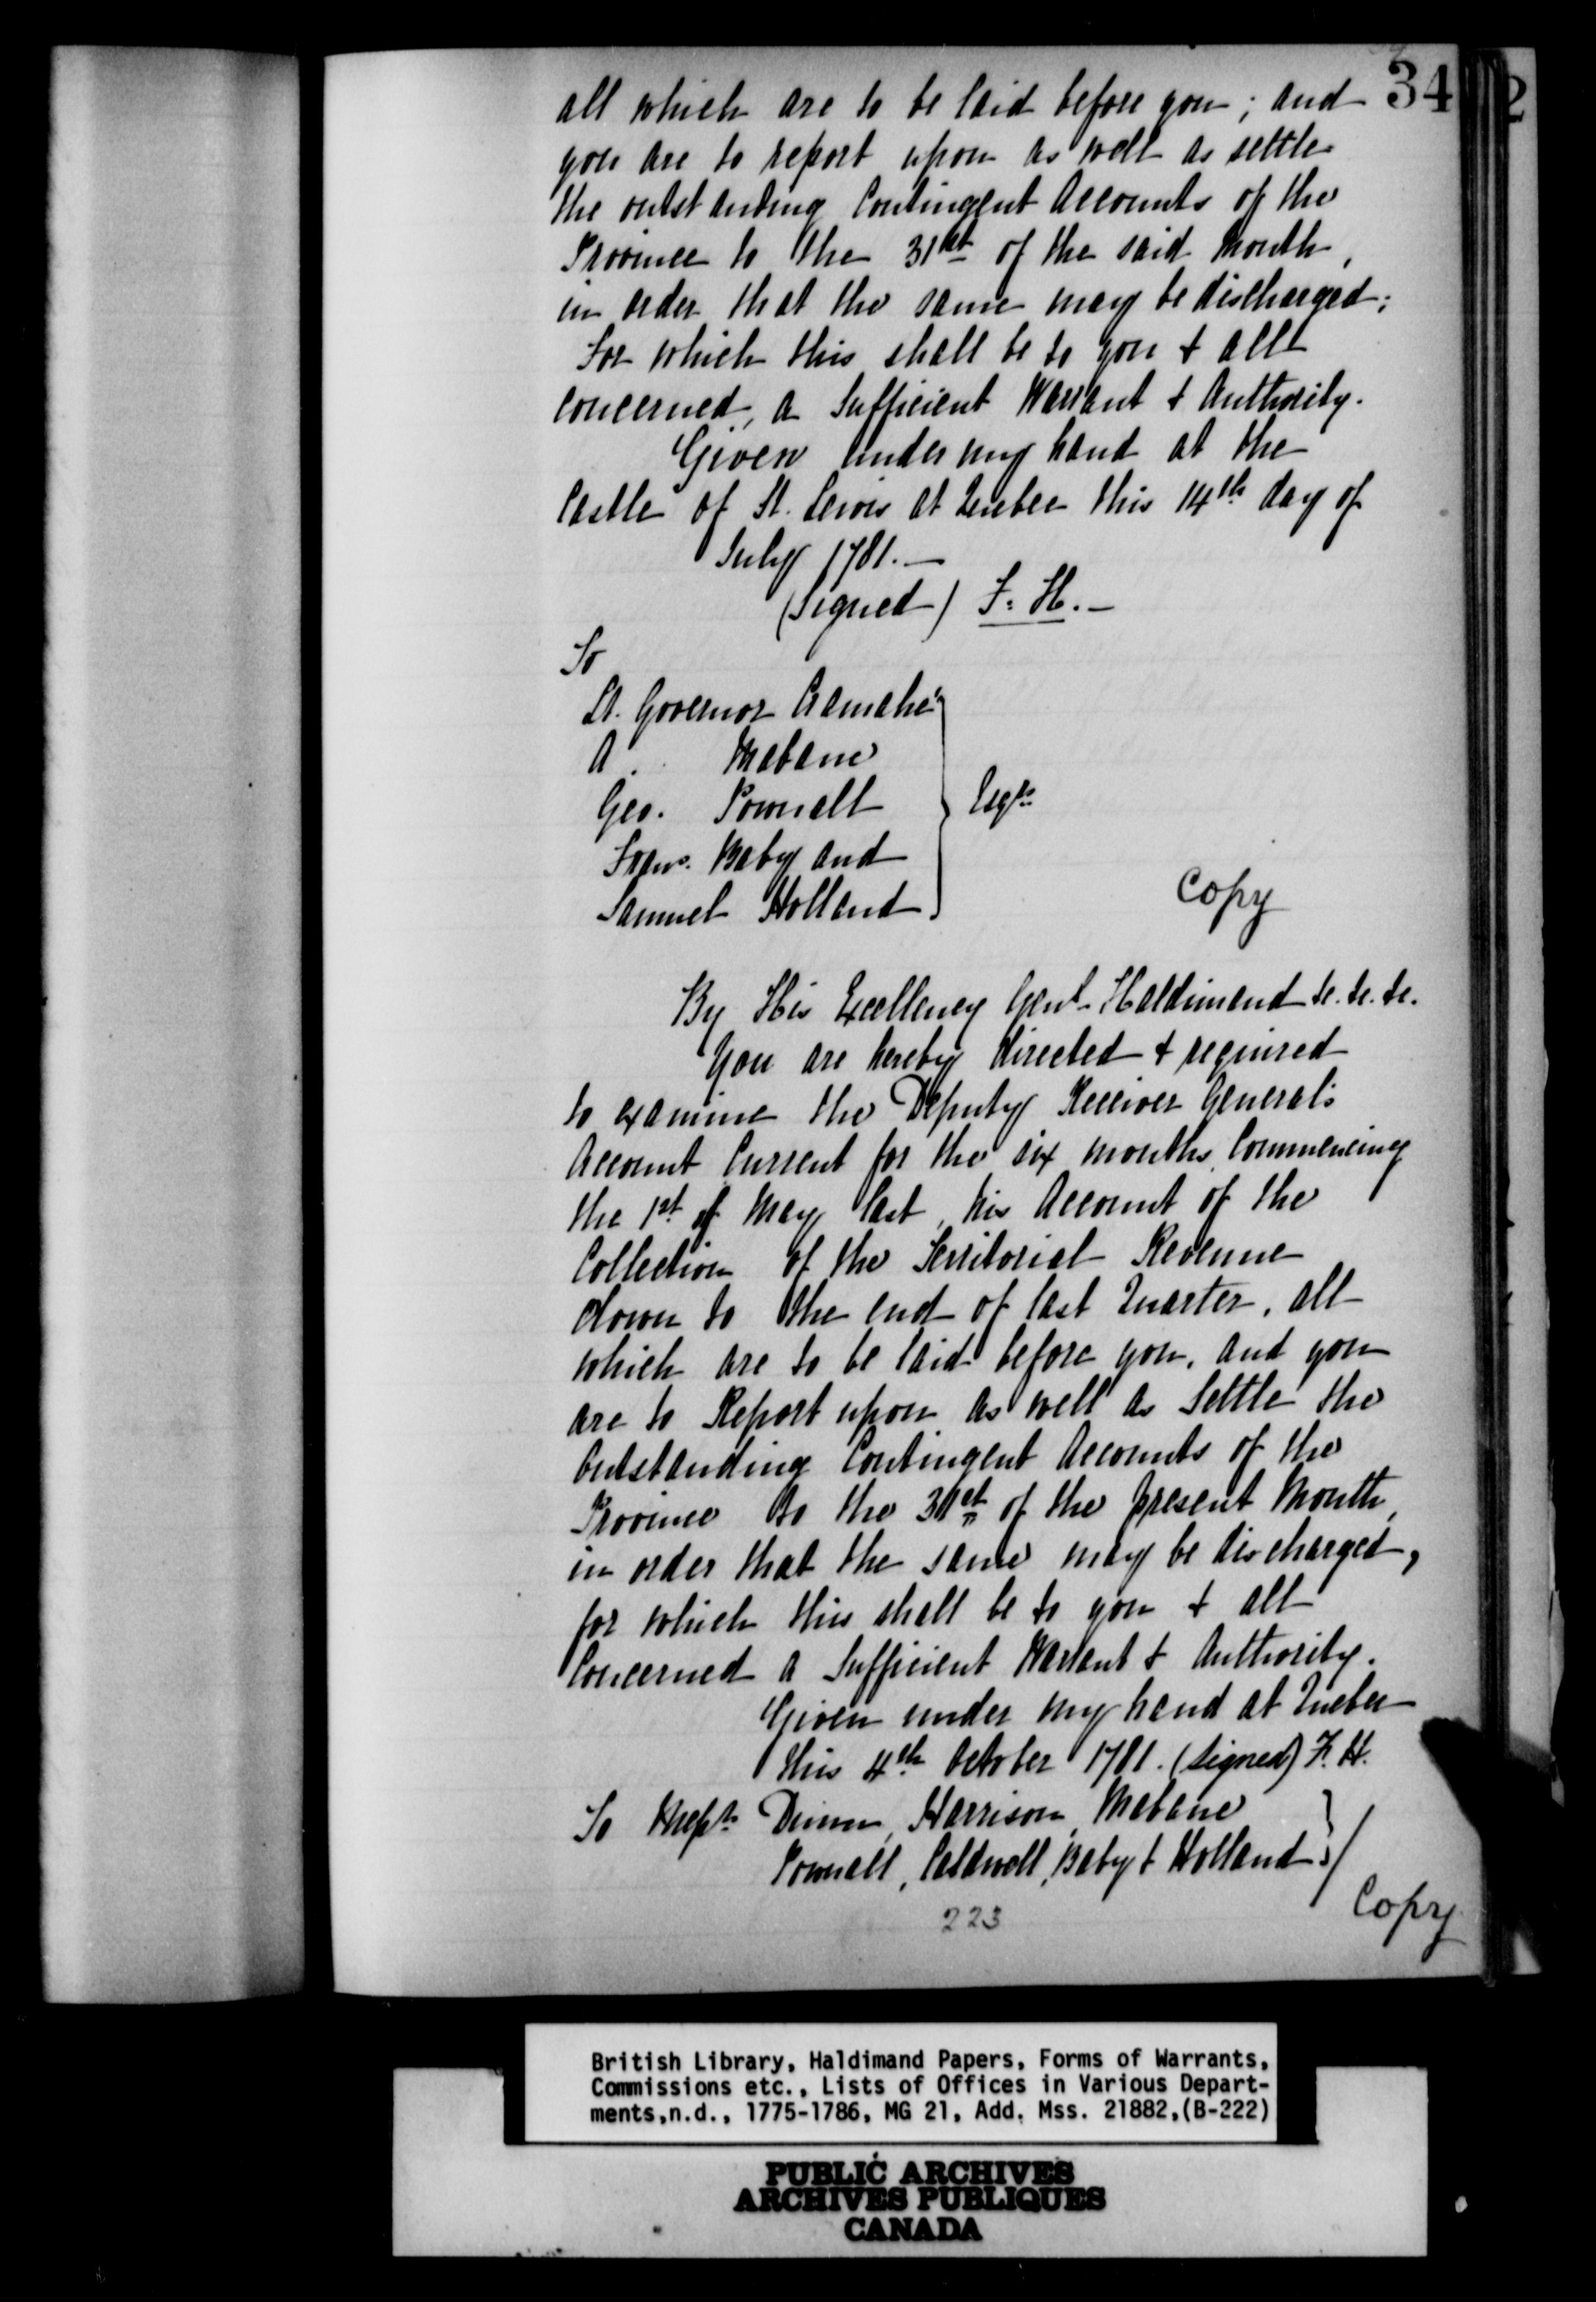 34
all which are to be laid before you; and
you are to report upon as well as settle
the outstanding Contingent Accounts of the
Province to the 31st of the said Month,
in order that the same may be discharged;
For which this shall be to you & all
concerned, a Sufficient Warrant & Authority.
Given under my hand at the
Castle of St. Lewis at Quebec this 14th day of
July 1781.—
(Signed) F: H.—
To
Lt. Governor Cramahé
A. Mabane
Geo. Pownall
Frans. Baby and
Samuel Holland
Esqrs
Copy
By His Excellency Genl Haldimand &c. &c. &c.
You are hereby directed & required
to examine the Deputy Receiver General's
Account Current for the six months Commencing
the 1st of May last, his Account of the
Collection of the Territorial Revenue
down to the end of last Quarter, all
which are to be laid before you, and you
are to Report upon as well as Settle the
Outstanding Contingent Accounts of the
Province to the 31st of the present Month,
in order that the same may be discharged,
for which this shall be to you & all
Concerned a Sufficient Warrant & Authority.
Given under my hand at Quebec
this 4th October 1781. (Signed) F. H.
To Messrs Dunn, Harrison, Mabane
Pownall, Caldwell, Baby & Holland
223
Copy
British Library, Haldimand Papers, Forms of Warrants,
Commissions etc., Lists of Offices in Various Depart-
ments,n.d., 1775-1786, MG 21, Add. Mss. 21882,(B-222)
PUBLIC ARCHIVES
ARCHIVES PUBLIQUES
CANADA